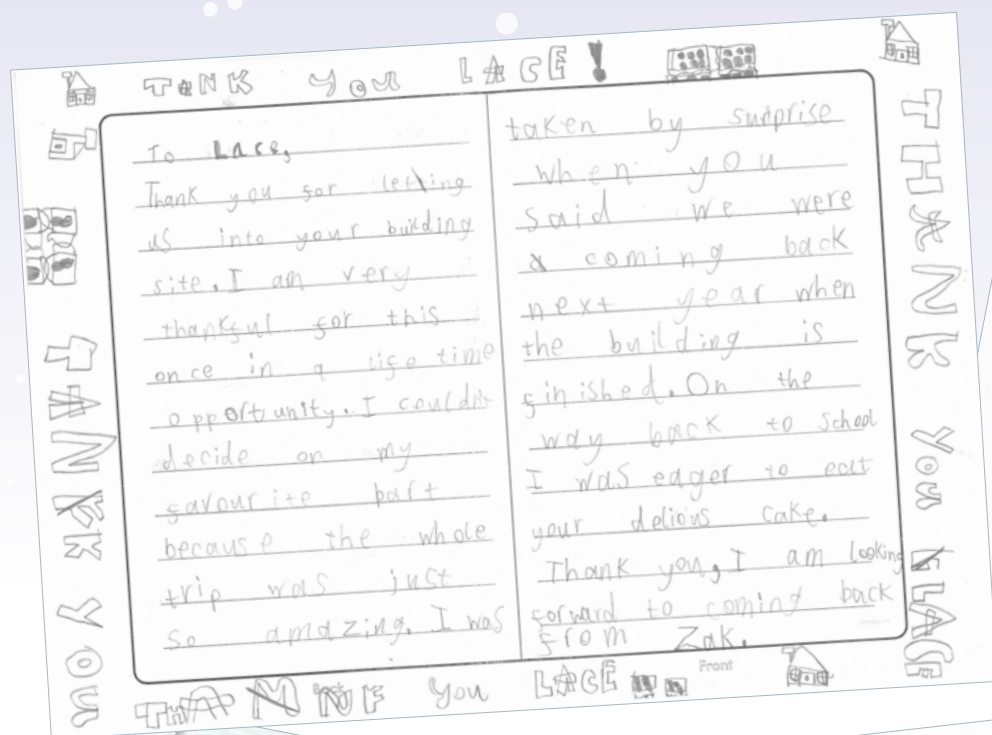 TaNK you LACE!
To Lace,
Thank you for letting
us into your building
site. I am very
thankful for this
once in a life time
opportunity. I couldnt
decide on my
favourite part
because the whole
trip was just
so amazing. I was
taken by surprise
when you
said we were
coming back
next year when
the building is
finished. On the
way back to school
I was eager to eat
your delious cake.
Thank you, I am looking
forward to coming back
from Zak.
THANK YOU LACE
YOU LACE
Front